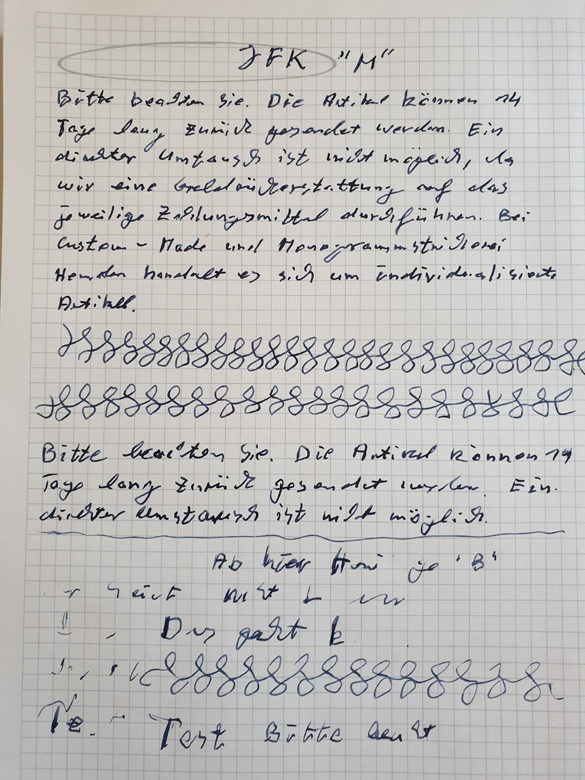 JFK "M"
Bitte beachten Sie. Die Artikel können 14
Tage lang zurück gesendet werden. Ein
direkter Umtausch ist nicht möglich, da
wir eine Geldrückerstattung auf das
jeweilige Zahlungsmittel durchführen. Bei
Custom-Made und Monogrammstickerei
Hemden handelt es sich um individualisierte
Artikel.
Bitte beachten Sie. Die Artikel können 14
Tage lang zurück gesendet werden. Ein
direkter Umtausch ist nicht möglich.
Ab hier "B"
nicht
Das geht
Te.
Test Bitte